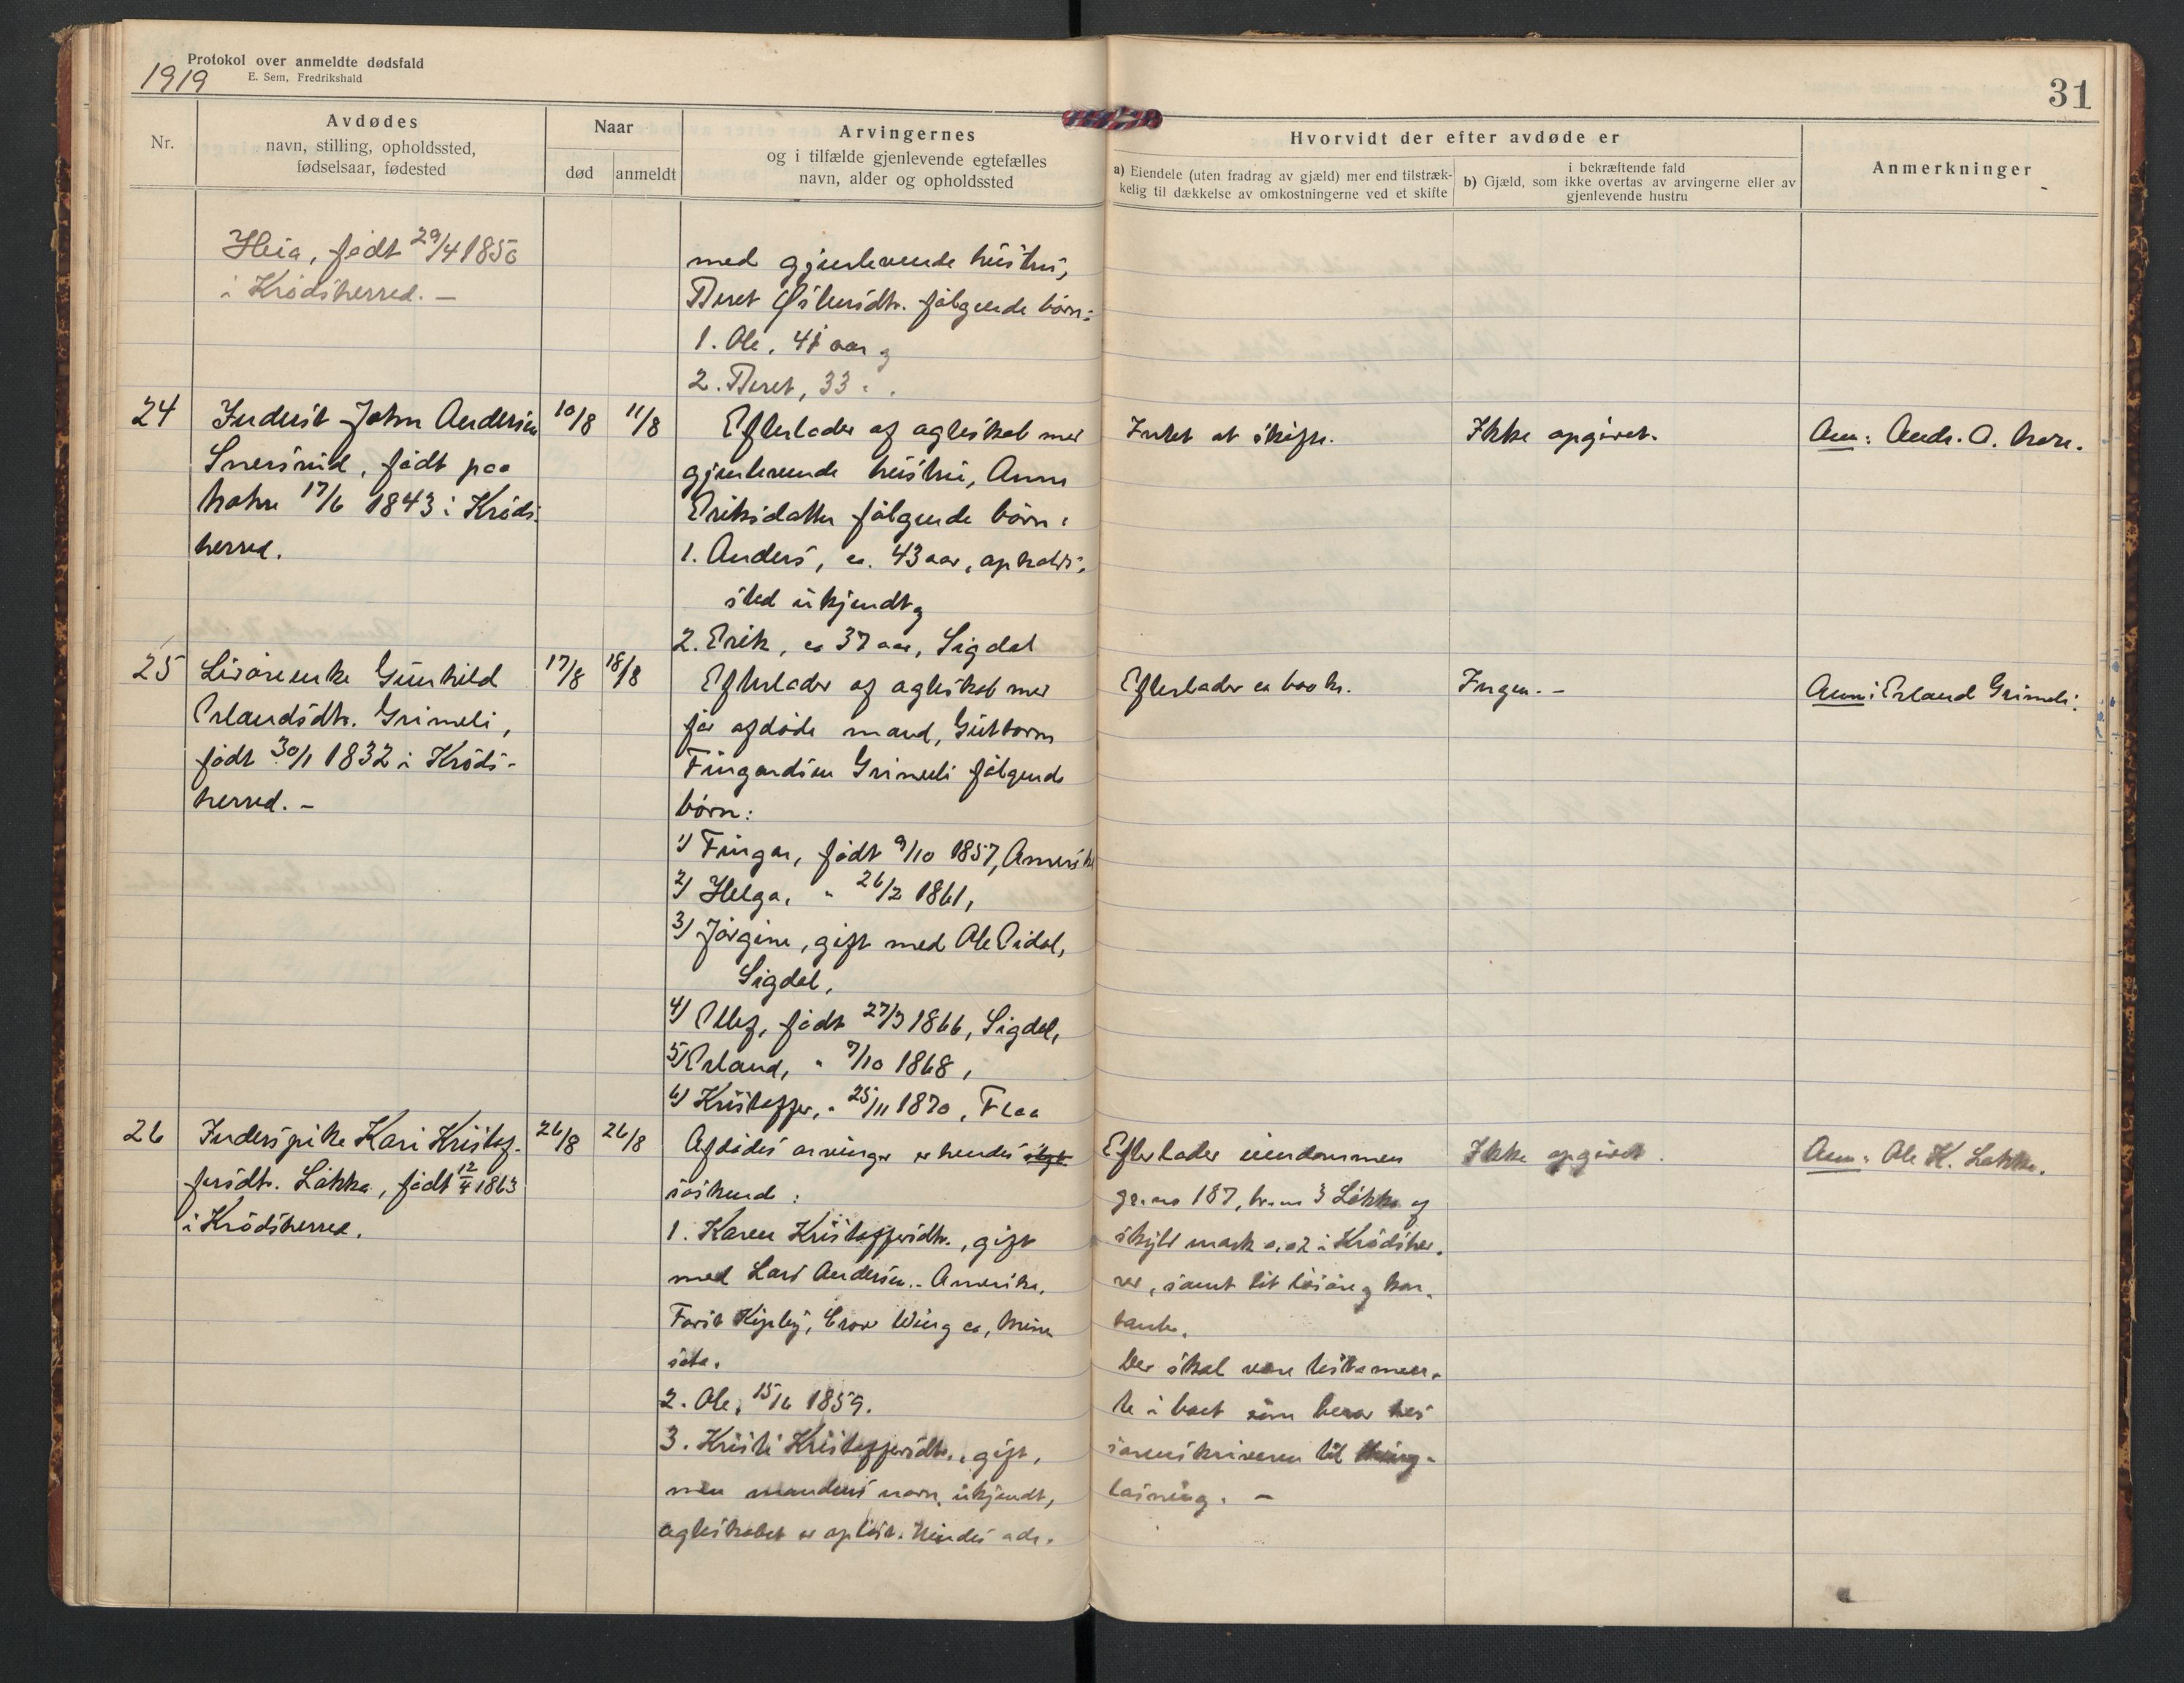 1919
Protokol over anmeldte dødsfald
E. Sem, Fredrikshald
31
Nr.
Avdødes
navn, stilling, opholdssted,
fødselsaar, fødested
Naar
død
anmeldt
Arvingernes
og i tilfælde gjenlevende egtefælles
navn, alder og opholdssted
Hvorvidt der efter avdøde er
a) Eiendele (uten fradrag av gjæld) mer end tilstræk-
kelig til dækkelse av omkostningerne ved et skifte
i bekræftende fald
b) Gjæld, som ikke overtas av arvingerne eller av
gjenlevende hustru
Anmerkninger
Heia, født 29/4 1850
i Krødsherred. -
med gjenlevende hustru,
Beret følgende børn:
1. Ole, 41 aar og
2. Beret, 33 " .
24
Inderst John Andersen
Snersrud, født paa
17/6 1843 i Krøds-
herred.
10/8
11/8
Efterlader af ægteskab med
gjenlevende hustru, Anne
Eriksdatter følgende børn:
1. Anders, ca. 43 aar, opholds-
sted ukjendt og
2. Erik, ca 37 aar, Sigdal
Intet at skifte.
Ikke opgivet.
Anm: Andr. O.
25
Livøreenke Gunhild
Erlandsdtr. Grimeli,
født 30/1 1832 i Krøds-
herred. -
17/8
18/8
Efterlader af ægteskab med
før afdøde mand, Guttorm
Fingardsen Grimeli følgende
børn:
1) Fingar, født 9/10 1857, Amerika
2) Helga, " 26/2 1861,
3) Jørgine, gift med Ole Eidal,
Sigdal,
4) Ellef, født 27/3 1866, Sigdal,
5) Erland, " 7/10 1868,
6) Kristoffer, " 25/11 1870, Flaa
Efterlader ca 600 kr.
Ingen. -
Anm: Erland Grimeli.
26
Inderstpike Kari Kristof-
fersdtr. Løkka, født 12/4 1863
i Krødsherred.
26/8
26/8
Afdødes arvinger er hendes
søskend:
1. Karen Kristoffersdtr., gift
med Lars Andersen. - Amerika,
Crow Wing co, Minne
sota.
2. Ole, 15/6 1859.
3. Kristi Kristoffersdtr., gift,
men mandens navn ukjendt,
ægteskabet er opløst. Hendes adr.
Efterlader eiendommen
gr. no 187, br. no 3 Løkka af
skyld mark 0,02 i Krødsher-
red, samt lit løsøre og kon-
tanter.
Der skal være testamen-
te i boet som beror hos
sorenskriveren til thing-
læsning. -
Ikke opgivet.
Anm: Ole K. Løkka.